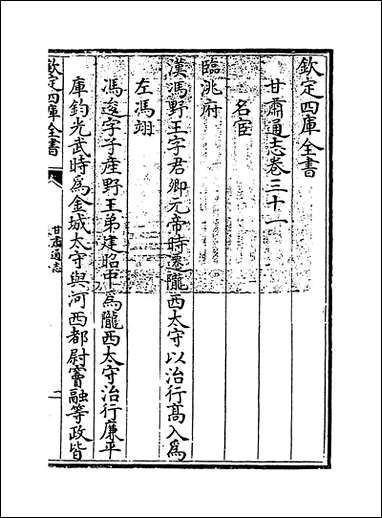 欽定四庫全書
甘肅通志卷三十一
名宦
臨洮府
漢馮野王字君卿元帝時遷隴西太守以治行高入為
左馮翊
馮逡字子產野王弟建昭中為隴西太守治行廉平
庫鈞光武時為金城太守與河西都尉竇融等政皆
欽定四庫全書
甘肅通志